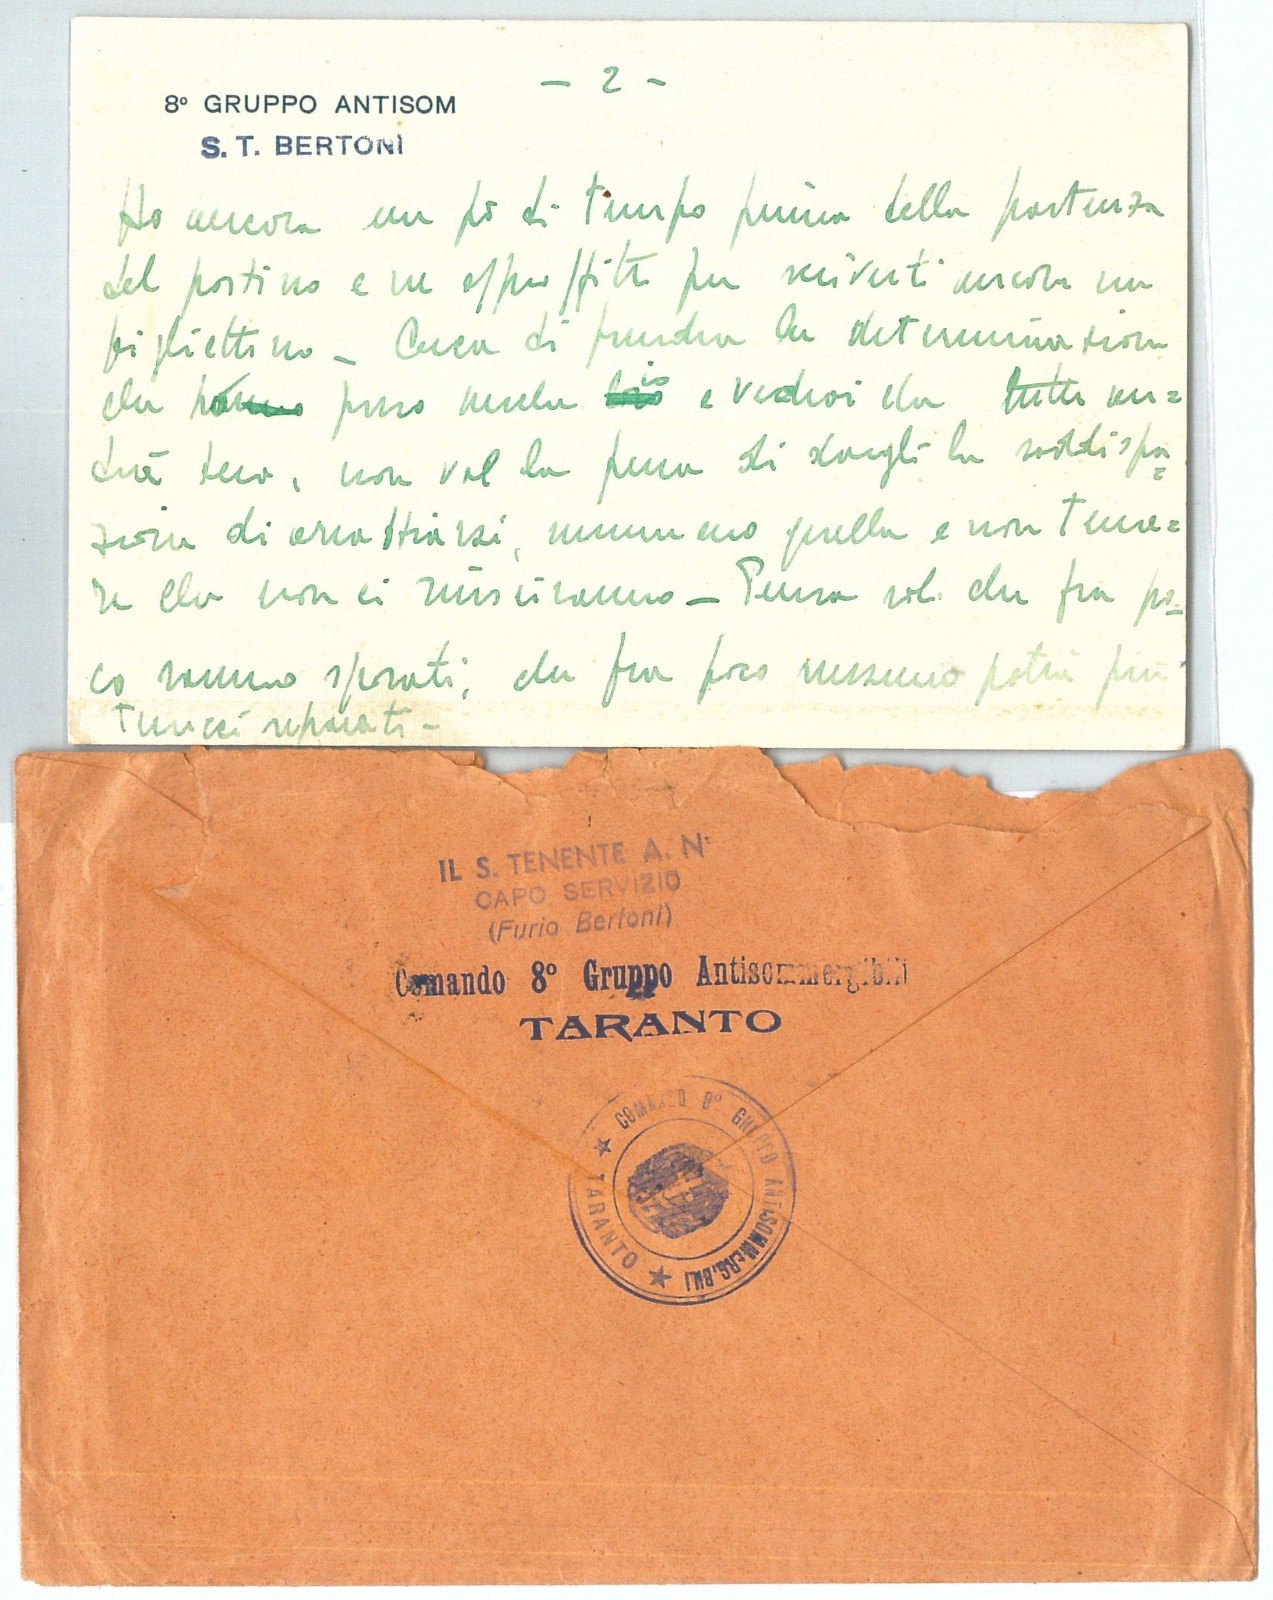 - 2 -
8º GRUPPO ANTISOM
S. T. BERTONI
Ho ancora un pò di tempo prima della partenza
del postino e ne approffitto per scriverti ancora un
bigliettino - Cerca di prendere la determinazione
che presi anch' io e vedrai che tutto an=
drà bene, non val la pena di dargli la soddisfa=
zione di arrabbiarsi, nemmeno quella e non teme=
re che non ci riusciranno - Pensa solo che fra po=
co saremo sposati, che fra poco nessuno potrà più
tenerci separati -
IL S. TENENTE A. N.
CAPO SERVIZIO
(Furio Bertoni)
Comando 8º Gruppo Antisommergibili
TARANTO
COMANDO 8º GRUPPO ANTISOMMERG.BILI
★ TARANTO ★